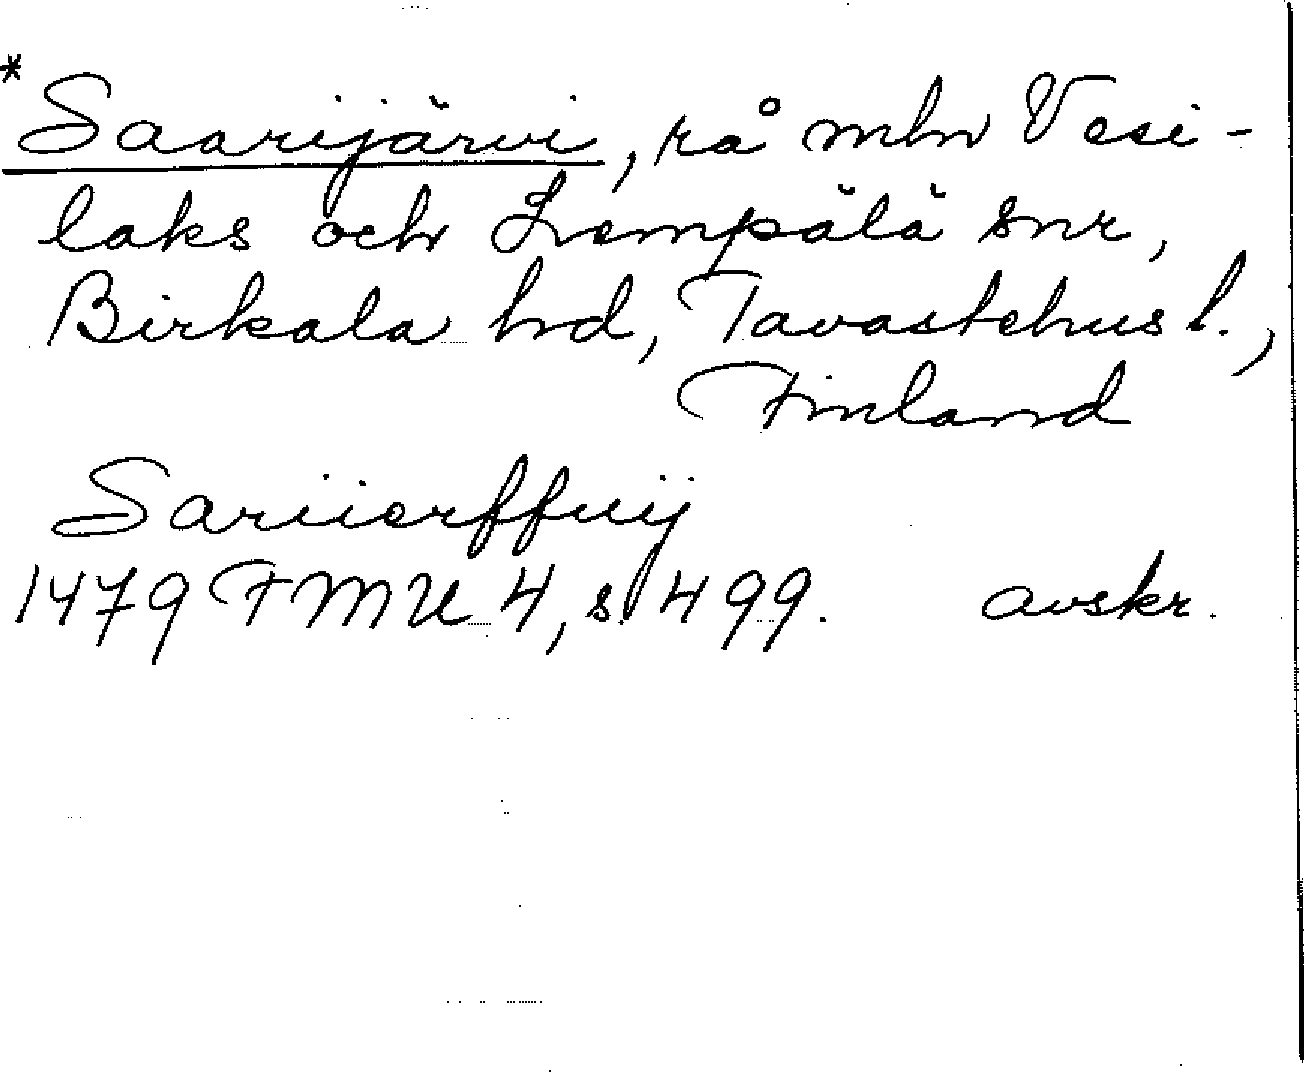 *Saarijärvi, rå mln Vesi-
laks och Lempälä snr,
Birkala hd, Tavastehus l.,
Finland
Sariierffuij
1479 FMU 4, s. 499. avskr.